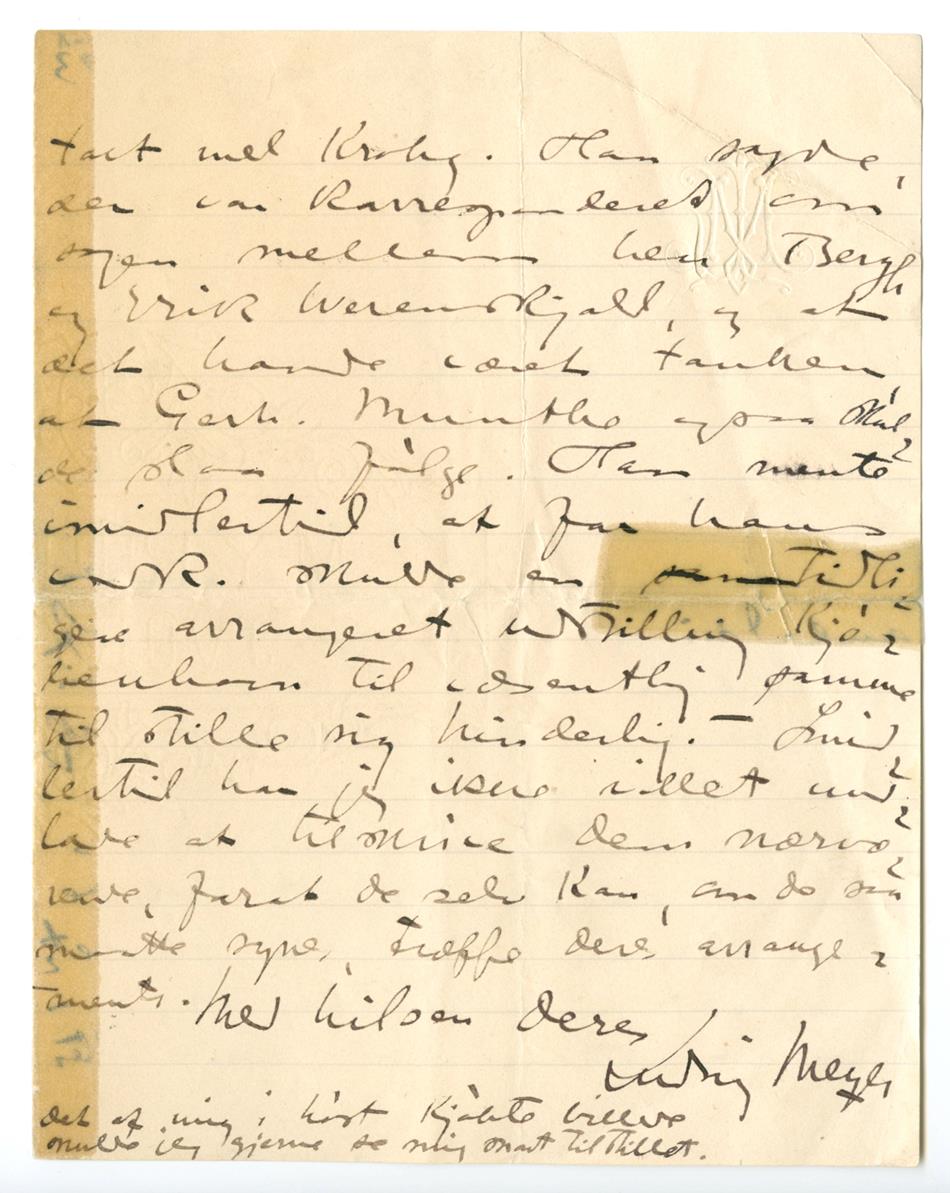 talt med Krohg. Han sagde,
der var korresponderet om
sagen mellem herr Bergh
og Erik Werenskjold, og at
det havde været tanken,
at Gerh. Munthe ogsaa skul-
de slaa følge. Han mente
imidlertid, at for hans
vedk. skulde en tidli-
gere arrangeret udstilling Kjø-
benhavn til væsentlig samme
tid stille sig hinderlig. – Imid-
lertid har jeg ikke villet und-
lade at tilskrive Dem nærvæ-
rende, forat De selv kan, om De saa
maatte synes, træffe Deres arrange-
ments. Med hilsen Deres
Ludvig Meyer
Det af mig i høst kjøbte billede
skulde jeg gjerne se mig snart tilstillet.